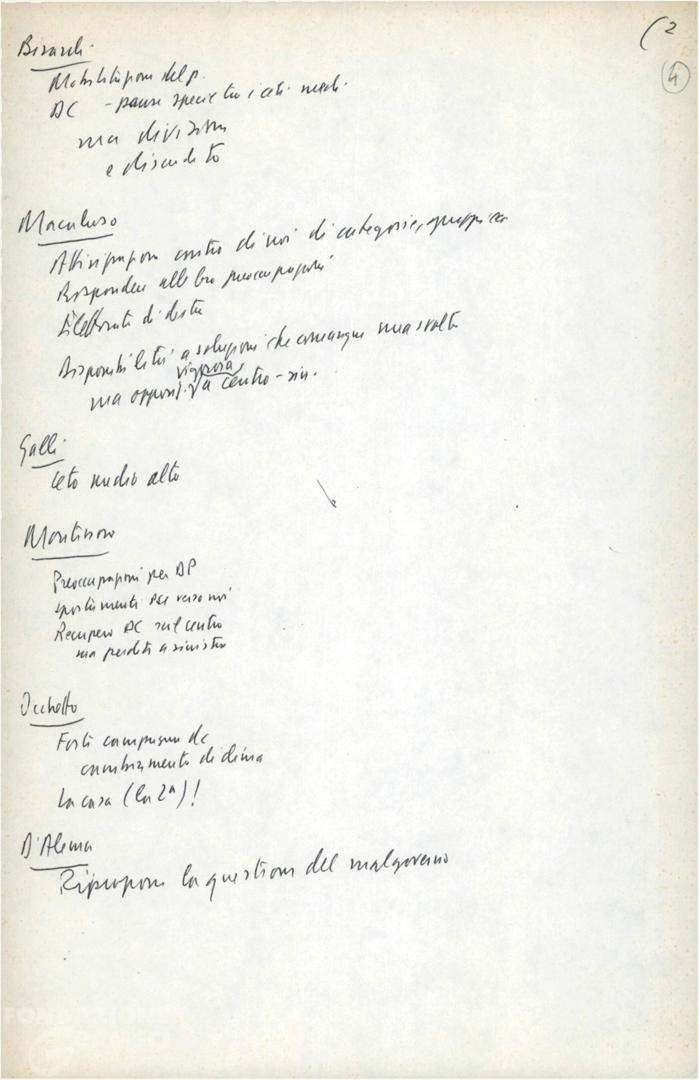 (2
4
Birardi
Mobilitazione del p.
DC - paure specie tra i ceti medi.
ma divisioni
e discredito
Macaluso
contro di noi di categorie, gruppi ecc
Rispondere alle loro preoccupazioni
L'elettorato di destra
Disponibilità a soluzioni che comunque una svolta
vigorosa
ma opposiz. va centro-sin.
Galli
Ceto medio alto
Montessoro
Preoccupazioni per DP
spostamenti PSI verso noi
Recupero DC sul centro
ma perdite a sinistra
Occhetto
Forte campagna dc
cambiamento di clima
La casa (la 2ª)!
D'Alema
Riproporre la questione del malgoverno